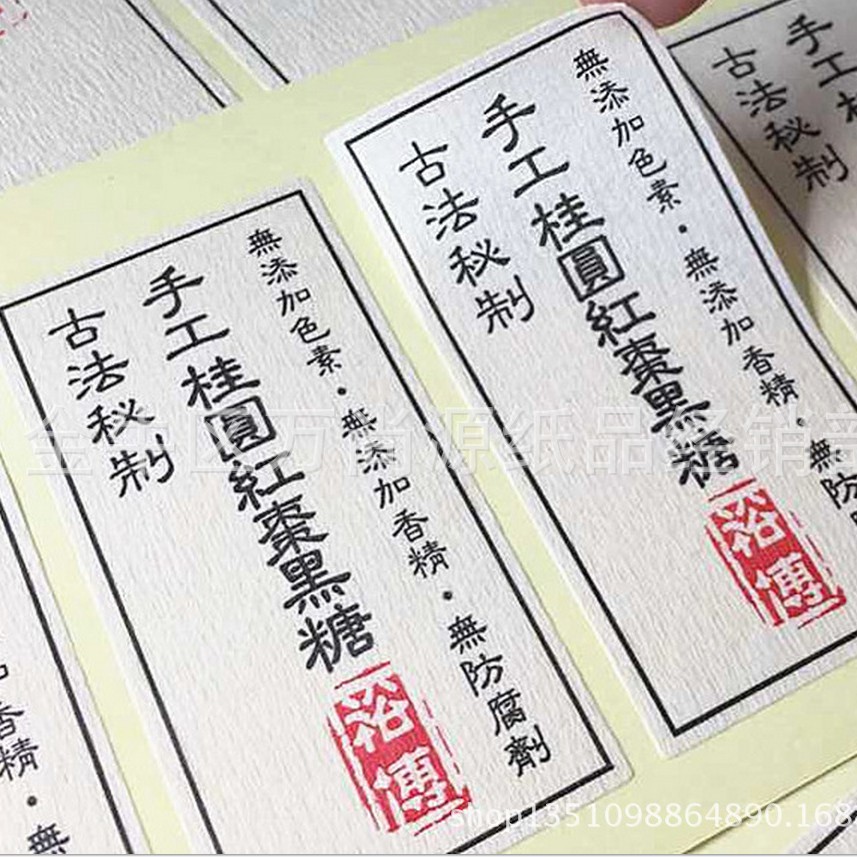 無添加色素·無添加香精·無防腐劑
手工桂圓紅棗黑糖
古法秘制
裕傳
無添加色素·無添加香精·無防
手工桂圓紅棗黑糖
古法秘制
裕傳
手工桂
古法秘制
香精·無
万尚源纸品经销部
shop1351098864890.168